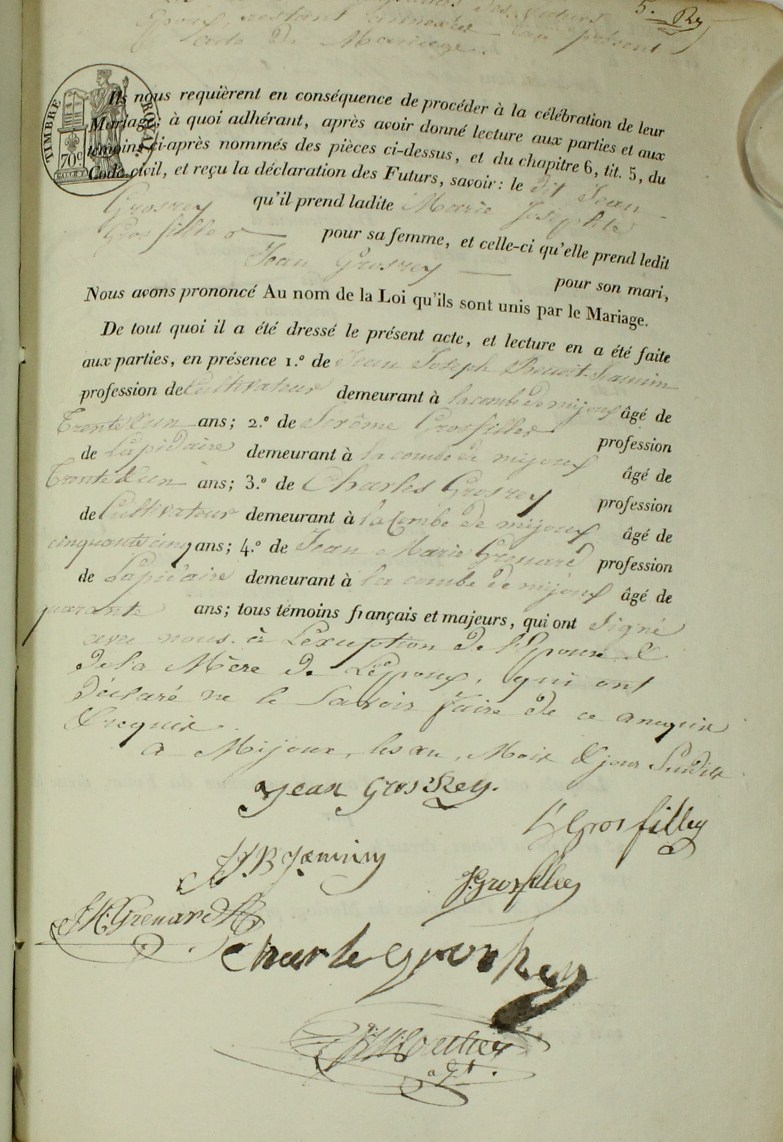 5. Ry
restant annexées au présent
acte de Mariage.
TIMBRE ROYAL
70c
Ils nous requièrent en conséquence de procéder à la célébration de leur
Mariage; à quoi adhérant, après avoir donné lecture aux parties et aux
témoins ci-après nommés des pièces ci-dessus, et du chapitre 6, tit. 5, du
Code civil, et reçu la déclaration des Futurs, savoir: le dit Jean
Grosrey qu'il prend ladite Marie Josephte
Grosfilley pour sa femme, et celle-ci qu'elle prend ledit
Jean Grosrey pour son mari,
Nous avons prononcé Au nom de la Loi qu'ils sont unis par le Mariage.
De tout quoi il a été dressé le présent acte, et lecture en a été faite
aux parties, en présence 1.º de Jean Joseph Benoit
profession de Cultivateur demeurant à lacombe de mijoux âgé de
Trente &un ans; 2.º de Jérôme Grosfilley profession
de Lapidaire demeurant à la combe de mijoux âgé de
Trente &un ans; 3.º de Charles Grosrey profession
de Cultivateur demeurant à la Combe de mijoux âgé de
cinquante cinq ans; 4.º de Jean Marie Grenard profession
de Lapidaire demeurant à la combe de mijoux âgé de
quarante ans; tous témoins français et majeurs, qui ont signé
avec nous à L'exception de l'Epouse &
de la Mère de L'Epoux, qui ont
déclaré ne le Savoir faire de ce enquis
& requis.
a Mijoux, les an, Mois & jour Susdits
Jean GrosRey.
Grosfilley
JB
J Grosfilley
J M Grenard
Charle Grosrey